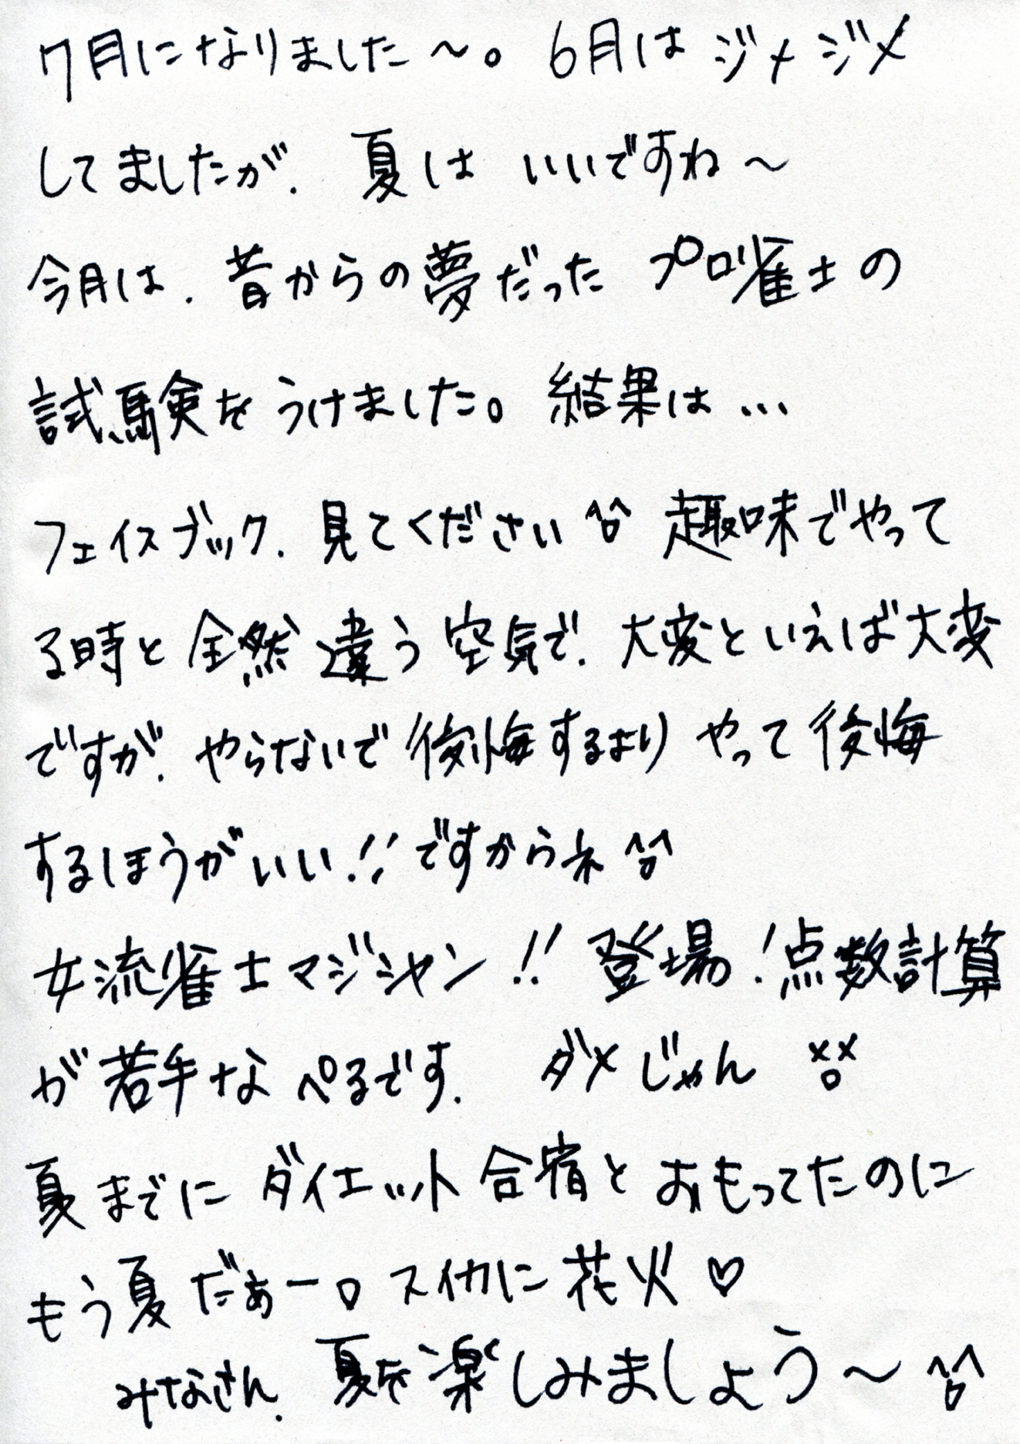 7月になりました〜。6月はジメジメ
してましたが、夏はいいですね〜
今月は、昔からの夢だったプロ雀士の
試験をうけました。結果は…
フェイスブック、見てください^o^ 趣味でやって
る時と全然違う空気で、大変といえば大変
ですが、やらないで後悔するよりやって後悔
するほうがいい!!ですからネ^o^
女流雀士マジシャン!!登場!点数計算
が苦手なぺるです。ダメじゃん xox
夏までにダイエット合宿とおもってたのに
もう夏だぁー。スイカに花火♡
みなさん、夏を楽しみましょう〜^o^